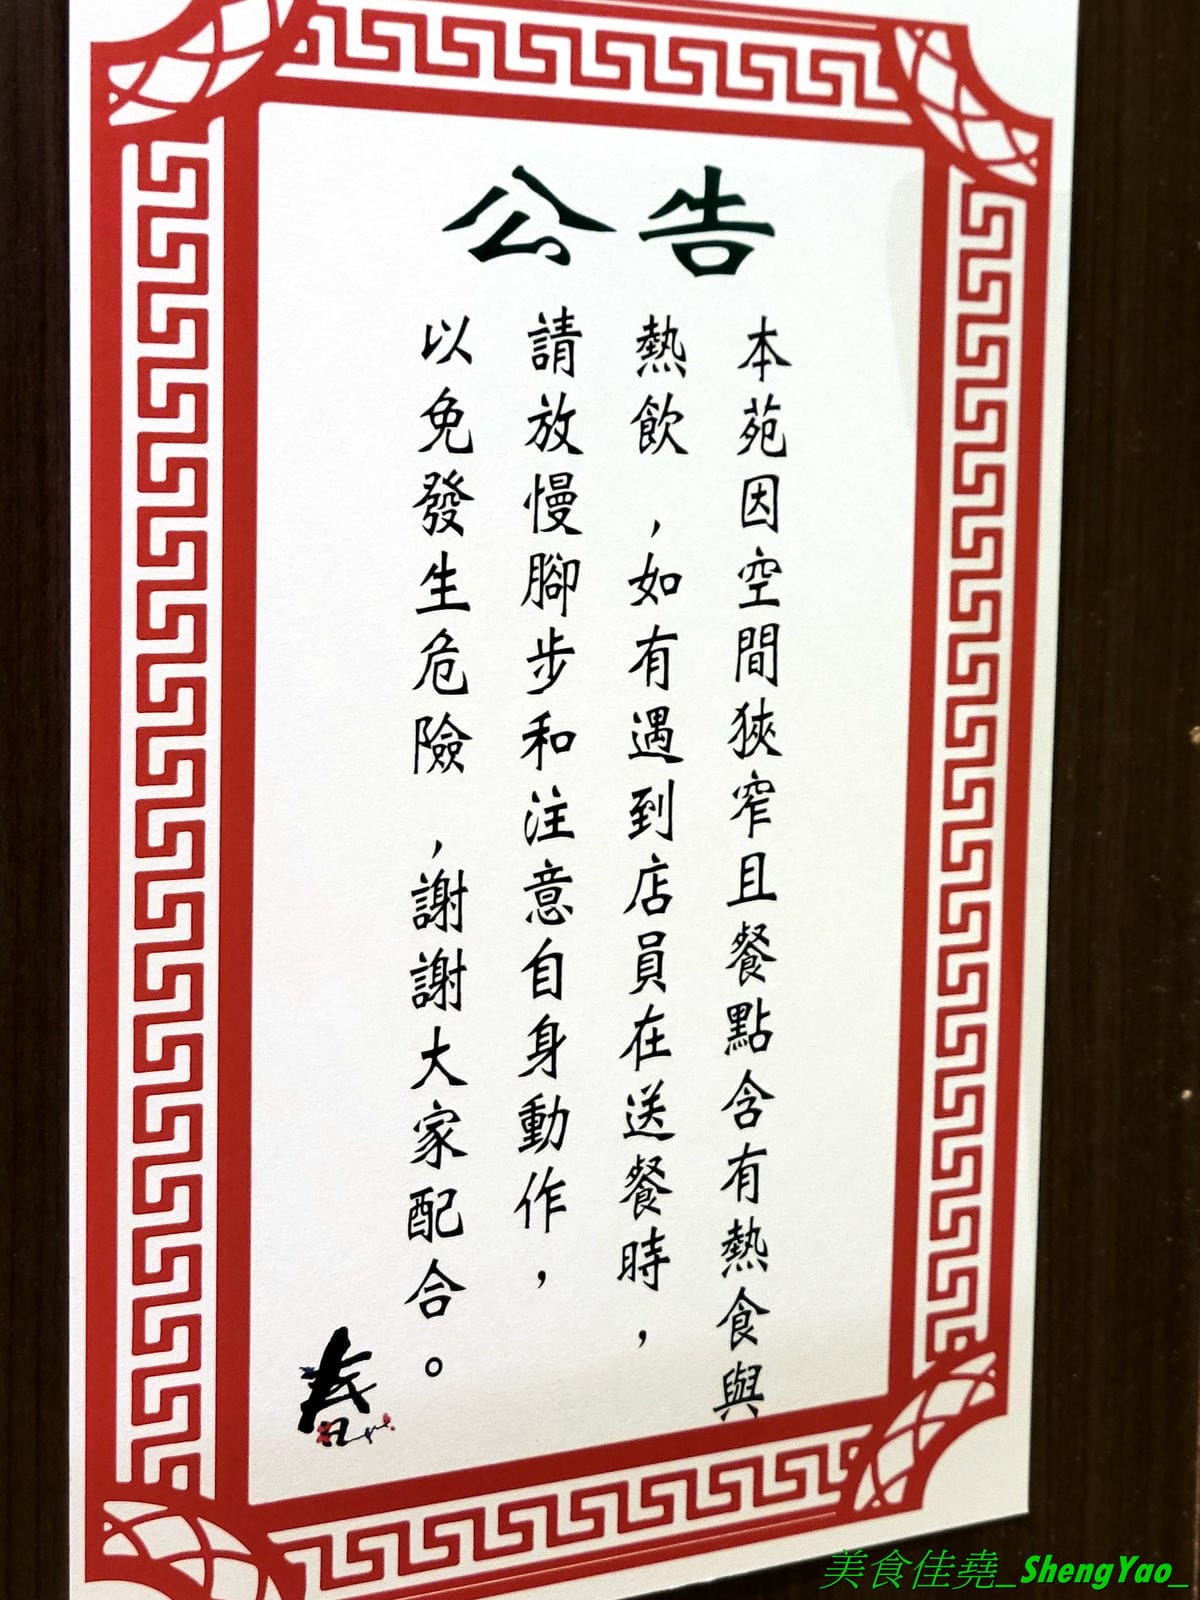 公告
本苑因空間狹窄且餐點含有熱食與
熱飲,如有遇到店員在送餐時,
請放慢腳步和注意自身動作,
以免發生危險,謝謝大家配合。
春
美食佳堯_ShengYao_